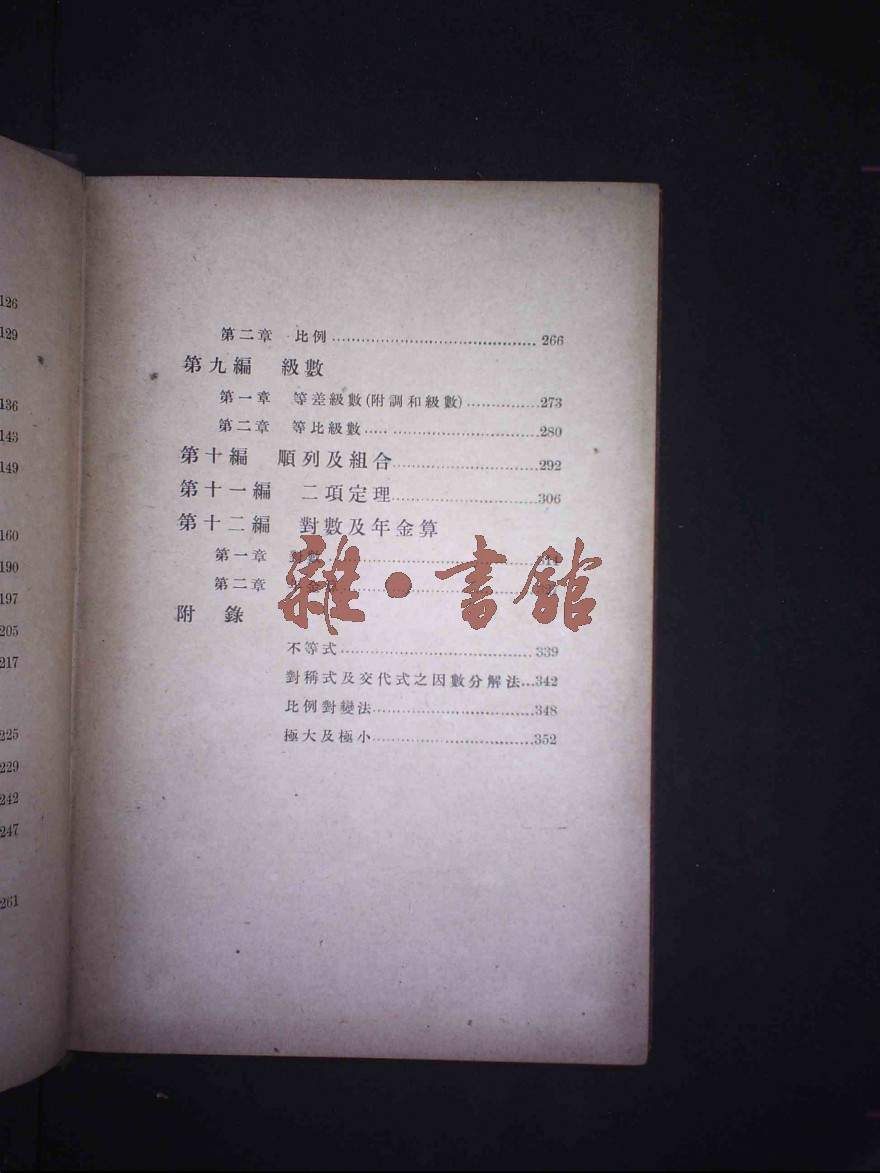 126
129
136
143
149
160
190
197
205
217
225
229
242
247
261
第二章 比例........................................ 266
第九編 級數
第一章 等差級數(附調和級數)...............273
第二章 等比級數..... ..............................280
第十編 順列及組合..............................292
第十一編 二項定理..............................306
第十二編 對數及年金算
第一章 對數
第二章
附錄
不等式.......................................339
對稱式及交代式之因數分解法...342
比例對變法.................................348
極大及極小.................................352
雜·書館